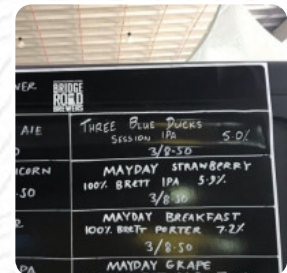 VER
BRIDGE
ROAD
BREWERS
AIE
THREE BLUE DUCKS
SESSION IPA 5.0%
3/8.50
ICORN
MAYDAY STRAWBERRY
100% BRETT IPA 5.9%
.50
3/8.50
MAYDAY BREAKFAST
100% BRETT PORTER 7.2%
3/8.50
PA
MAYDAY GRAPE